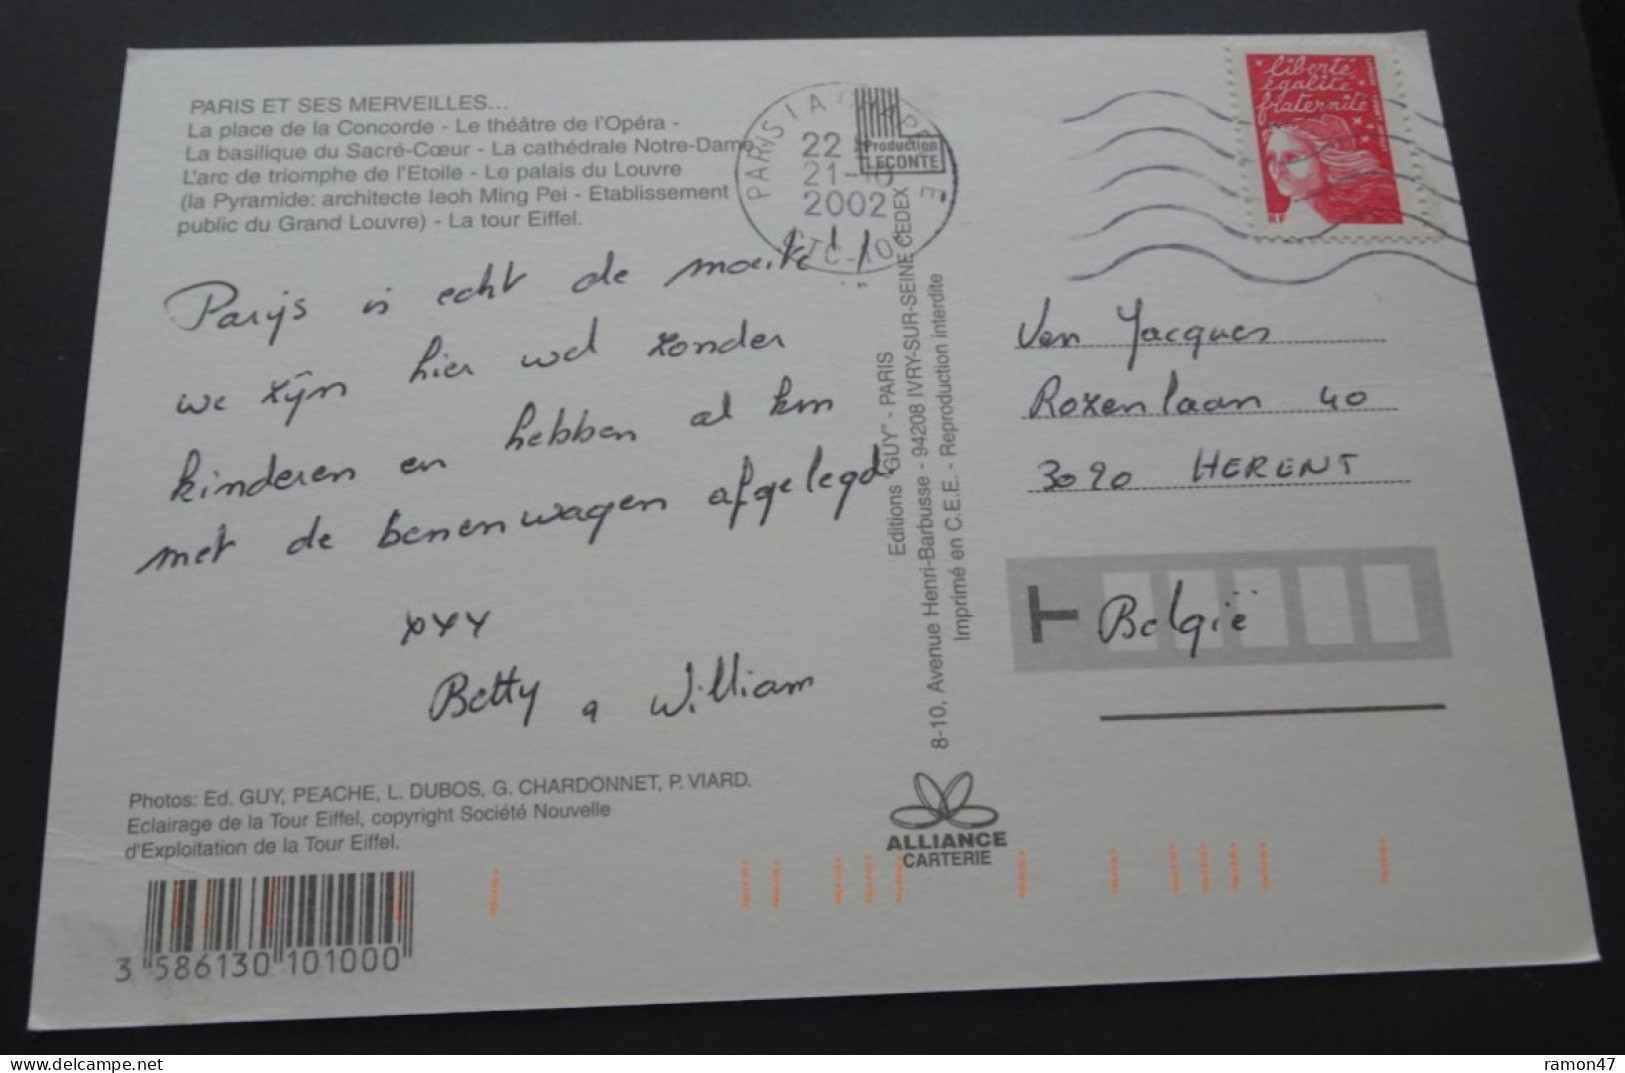 PARIS ET SES MERVEILLES...
La place de la Concorde - Le théâtre de l'Opéra -
La basilique du Sacré-Cœur - La cathédrale Notre-Dame,
L'arc de triomphe de l'Etoile - Le palais du Louvre
(la Pyramide: architecte Ieoh Ming Pei - Etablissement
public du Grand Louvre) - La tour Eiffel.
Parijs is echt de moeite!!
we zijn hier wel zonder
kinderen en hebben al km
met de benenwagen afgelegd
xxx
Betty & William
Photos: Ed. GUY, PEACHE, L. DUBOS, G. CHARDONNET, P. VIARD.
Eclairage de la Tour Eiffel, copyright Société Nouvelle
d'Exploitation de la Tour Eiffel.
3 586130 101000
PARIS
22
21-10
2002
CTC
Production
LECONTE
Editions "GUY" - PARIS
8-10, Avenue Henri-Barbusse - 94208 IVRY-SUR-SEINE CEDEX
Imprimé en C.E.E. - Reproduction interdite
ALLIANCE
CARTERIE
liberté
égalité
fraternité
RF
Van Jacques
Rozenlaan 40
3020 HERENT
T
België
ramon47